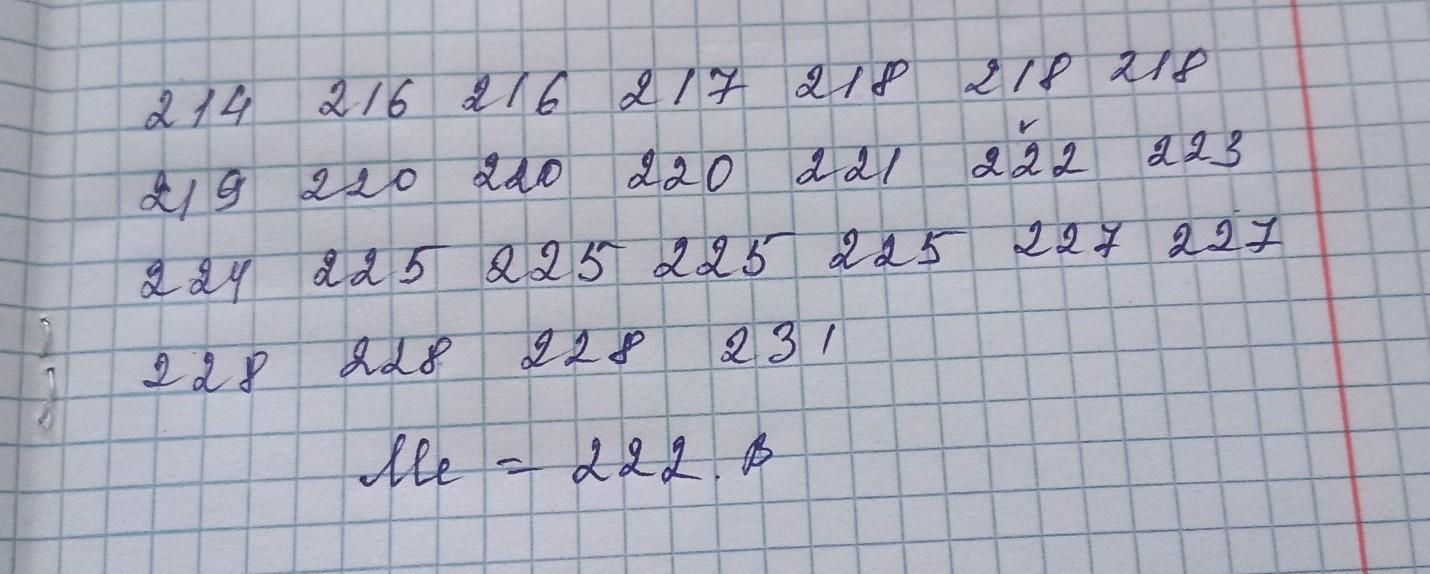 214 216 216 217 218 218 218
219 220 220 220 221 222 223
224 225 225 225 225 227 227
228 228 228 231
Me = 222. В